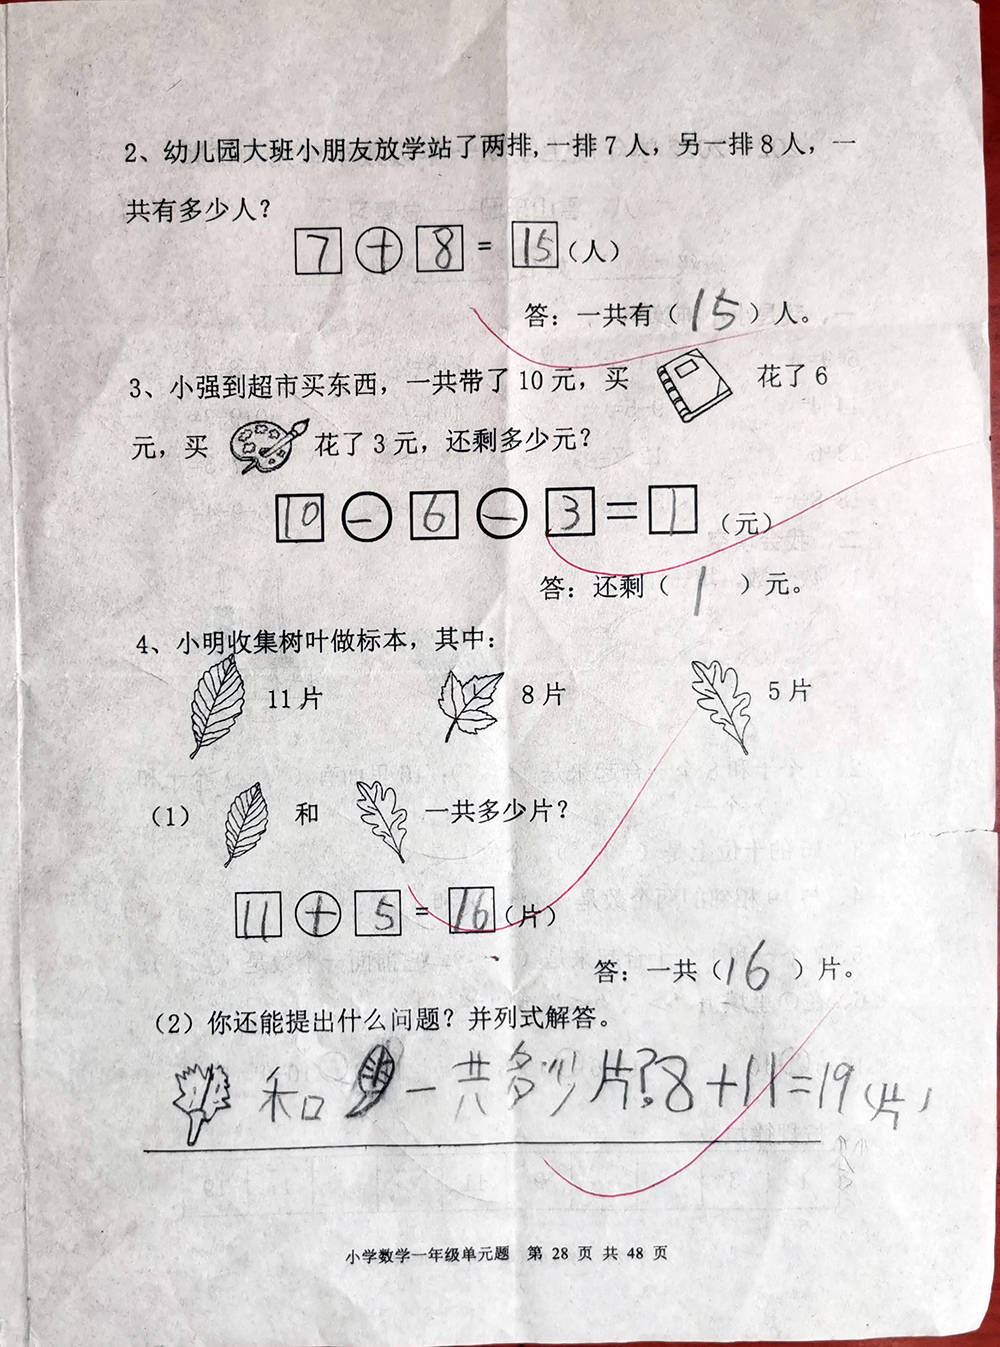 2、幼儿园大班小朋友放学站了两排,一排7人，另一排8人，一
共有多少人？
7 + 8 = 15 (人)
答：一共有（ 15 ）人。
3、小强到超市买东西，一共带了10元，买 花了6
元，买 花了3元，还剩多少元？
10 － 6 － 3 ＝ 1 (元)
答：还剩（ 1 ）元。
4、小明收集树叶做标本，其中：
11片 8片 5片
（1） 和 一共多少片？
11 + 5 = 16 (片)
答：一共（16 ）片。
（2）你还能提出什么问题？并列式解答。
和 一共多少片？8+11=19(片)
小学数学一年级单元题 第 28 页 共 48 页